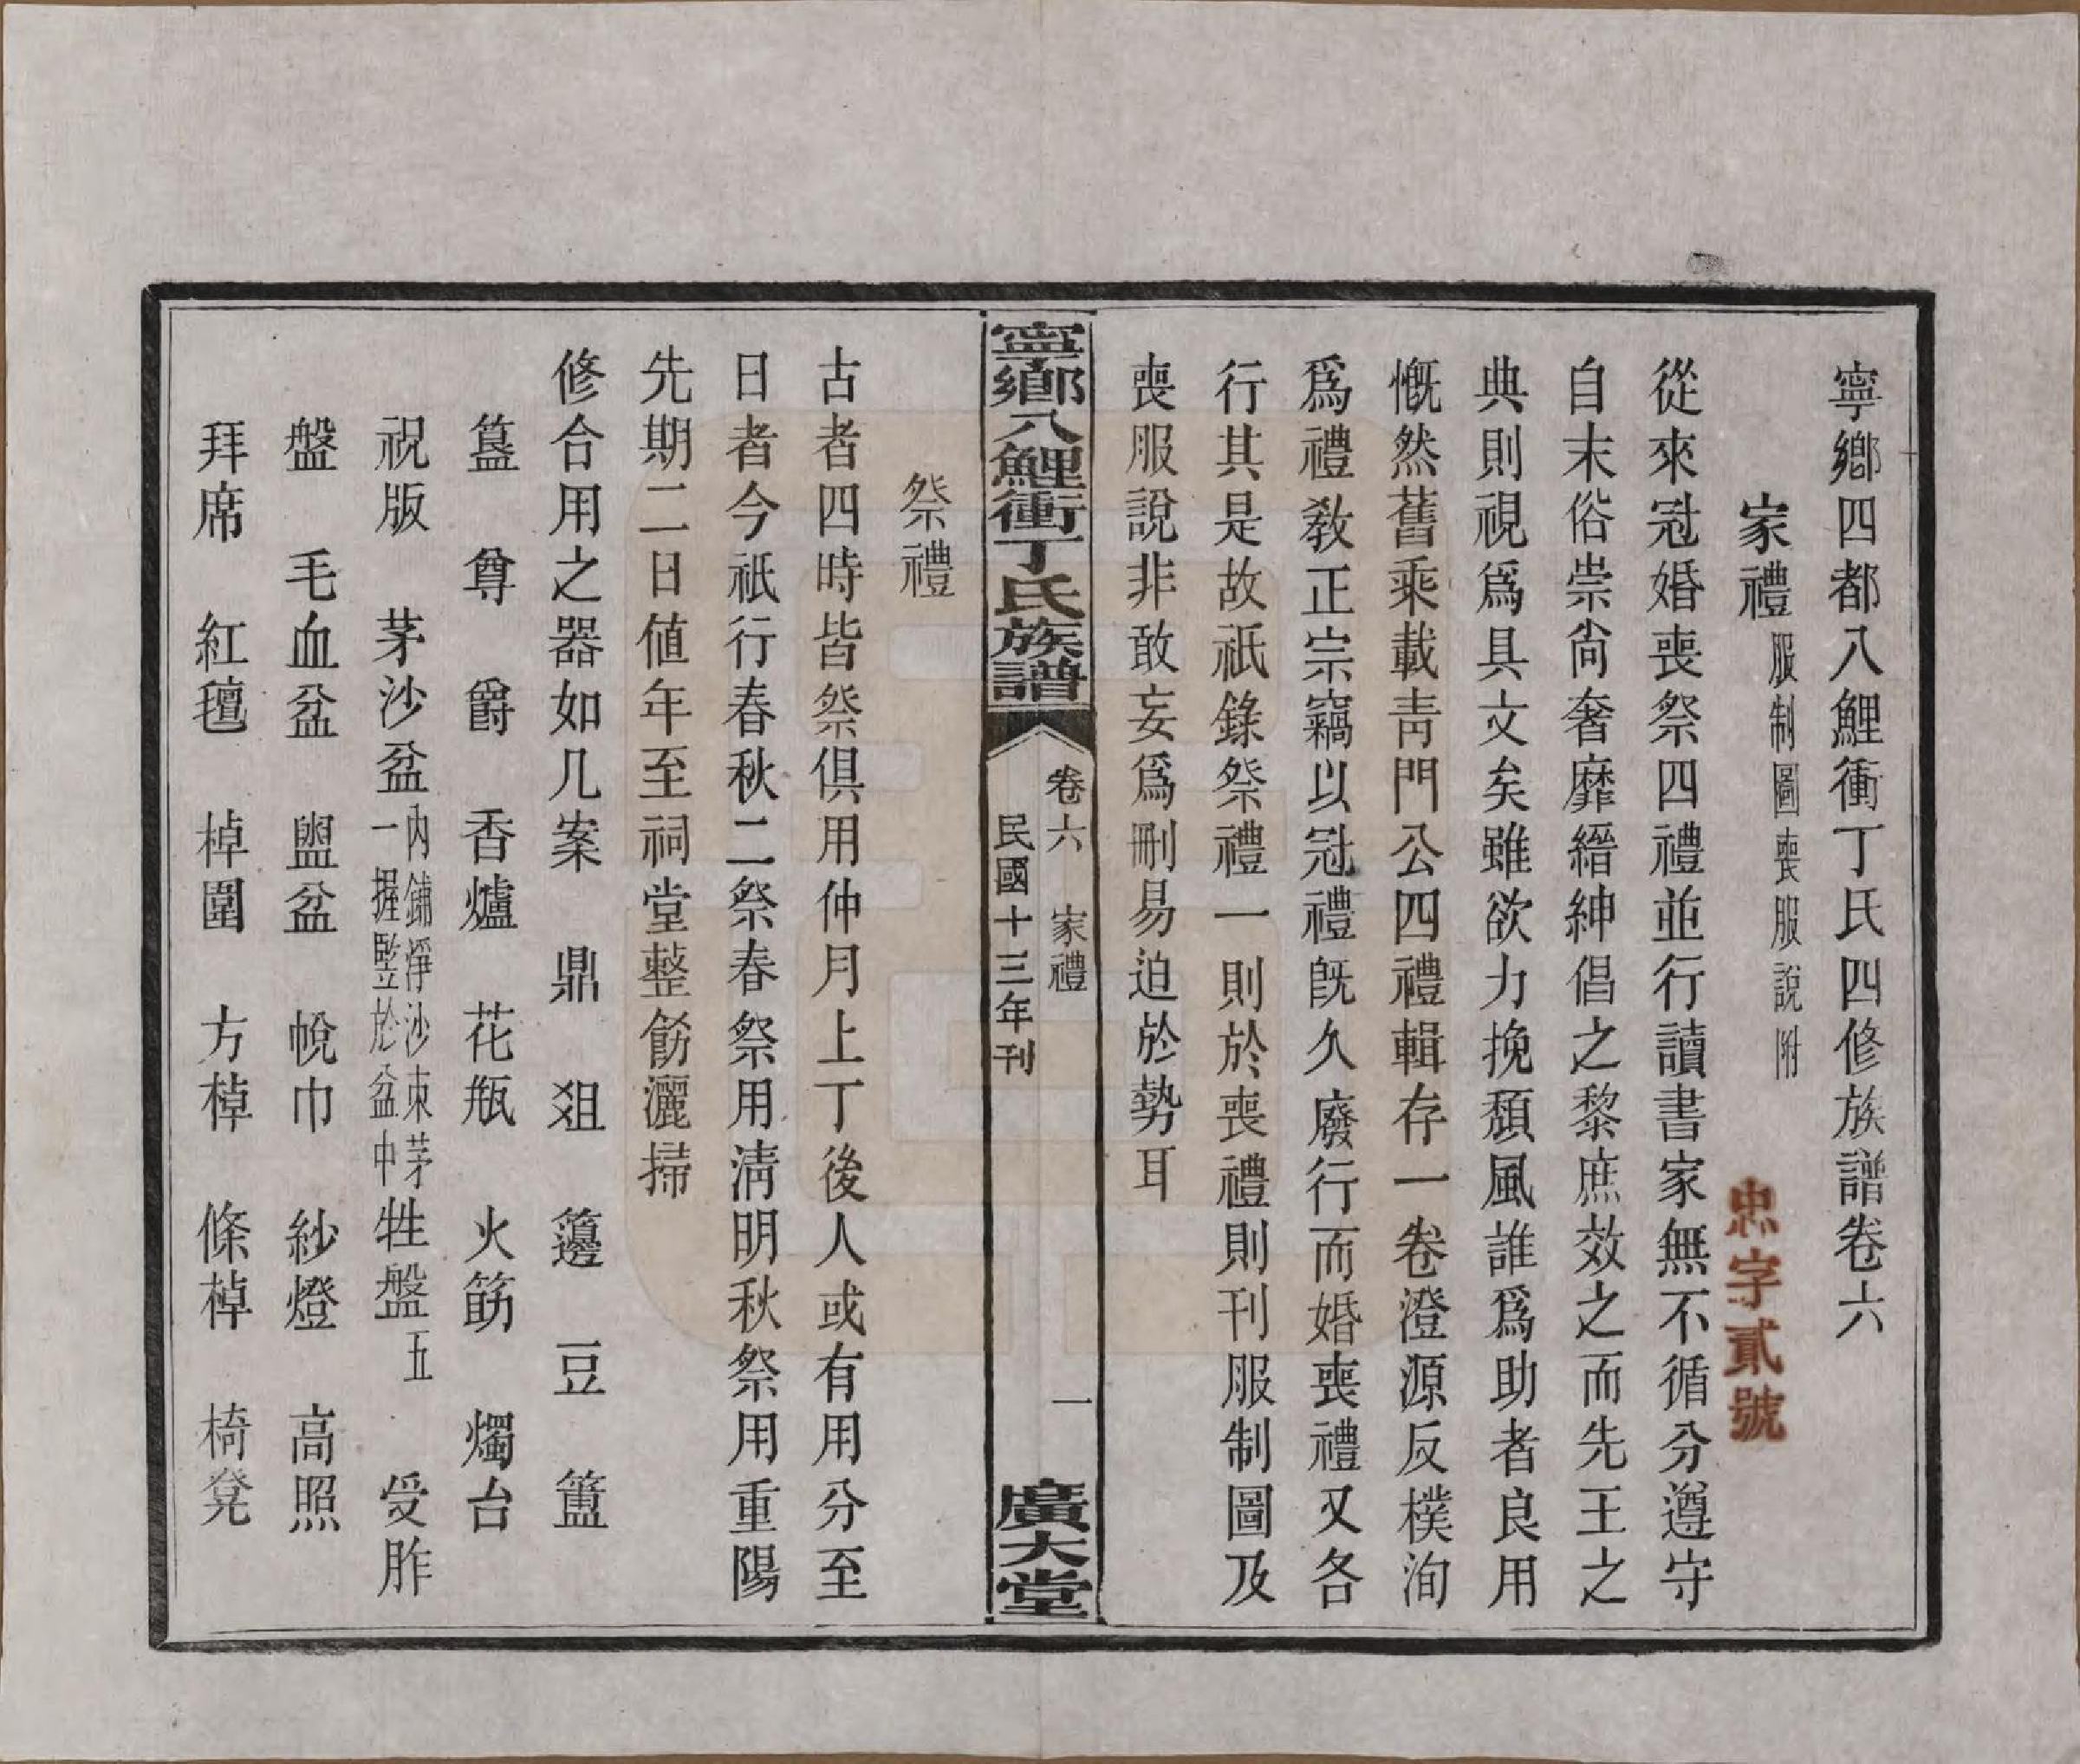 寧鄉四都八鯉衝丁氏四修族譜卷六
家禮 服制圖喪服說附
忠字貳號
從來冠婚喪祭四禮並行讀書家無不循分遵守
自末俗崇尙奢靡縉紳倡之黎庶效之而先王之
典則視爲具文矣雖欲力挽頹風誰爲助者良用
慨然舊乘載靑門公四禮輯存一卷澄源反樸洵
爲禮敎正宗竊以冠禮旣久廢行而婚喪禮又各
行其是故祇錄祭禮一則於喪禮則刊服制圖及
喪服說非敢妄爲刪易迫於勢耳
寧鄉八鯉衝丁氏族譜
卷六 家禮 一
民國十三年刊
廣大堂
祭禮
古者四時皆祭俱用仲月上丁後人或有用分至
日者今祇行春秋二祭春祭用淸明秋祭用重陽
先期二日値年至祠堂整飭灑掃
修合用之器如几案 鼎 俎 籩 豆 簠
簋 尊 爵 香爐 花瓶 火筯 燭台
祝版 茅沙盆 內鋪淨沙束茅一握竪於盆中 牲盤 五 受胙
盤 毛血盆 盥盆 帨巾 紗燈 高照
拜席 紅氊 棹圍 方棹 條棹 椅凳